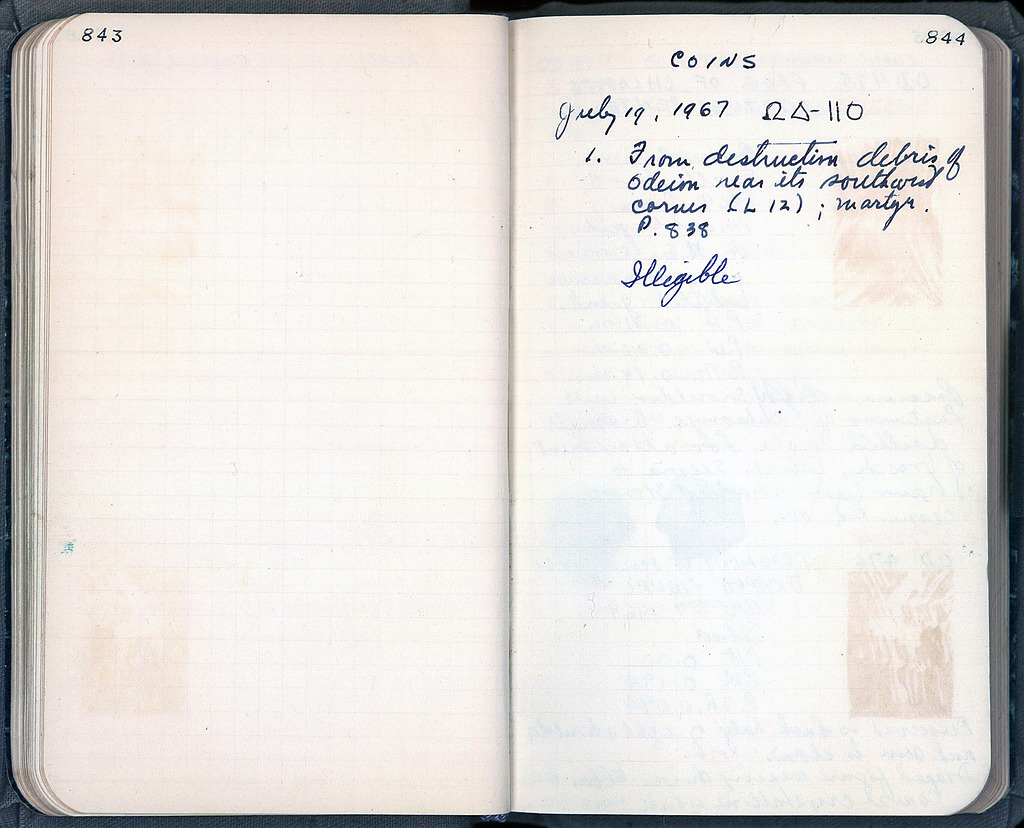 843
844
COINS
July 19, 1967 ΩΔ-110
1. From destruction debris of
Odeion near its southwest
corner (L 12) ; martyr.
P. 838
Illegible